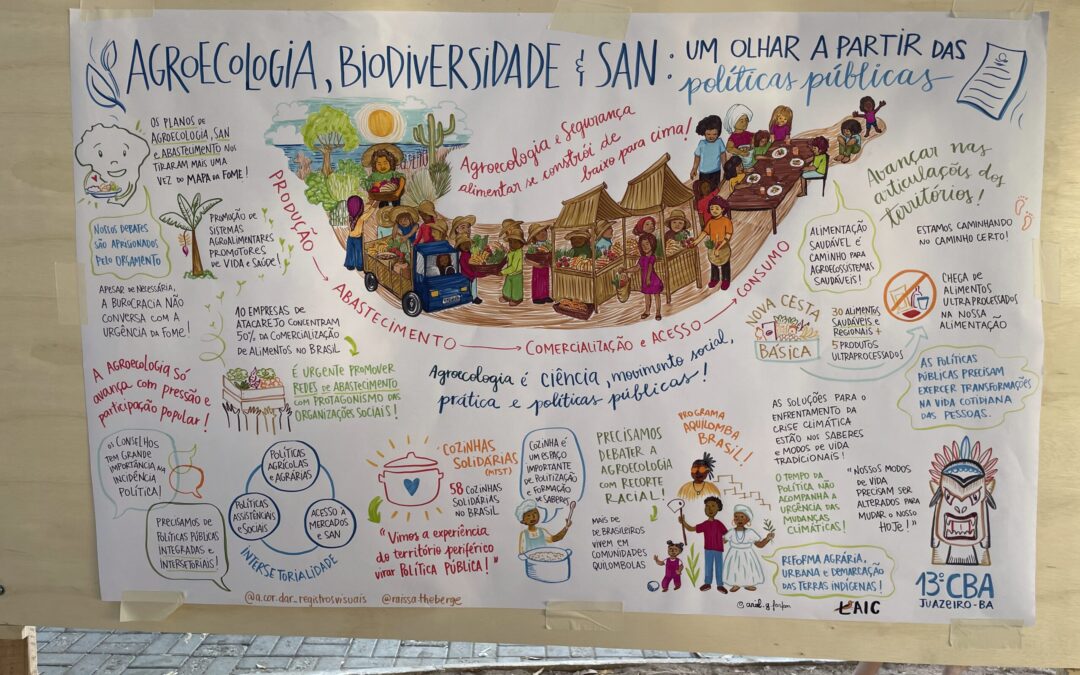 AGROECOLOGIA, BIODIVERSIDADE & SAN: UM OLHAR A PARTIR DAS
políticas públicas
OS PLANOS DE
AGROECOLOGIA, SAN
E ABASTECIMENTO NOS
TIRARAM MAIS UMA
VEZ DO MAPA DA FOME!
NOSSOS DEBATES
SÃO APRISIONADOS
PELO ORÇAMENTO
PROMOÇÃO DE
SISTEMAS
AGROALIMENTARES
PROMOTORES
DE VIDA E SAÚDE!
APESAR DE NECESSÁRIA,
A BUROCRACIA NÃO
CONVERSA COM A
URGÊNCIA DA FOME!
10 EMPRESAS DE
ATACAREJO CONCENTRAM
50% DA COMERCIALIZAÇÃO
DE ALIMENTOS NO BRASIL
A AGROECOLOGIA SÓ
AVANÇA COM PRESSÃO E
PARTICIPAÇÃO POPULAR!
É URGENTE PROMOVER
REDES DE ABASTECIMENTO
COM PROTAGONISMO DAS
ORGANIZAÇÕES SOCIAIS!
Agroecologia e Segurança
alimentar se constrói de
baixo para cima!
PRODUÇÃO
ABASTECIMENTO
COMERCIALIZAÇÃO E ACESSO
CONSUMO
Agroecologia é CIÊNCIA, movimento social,
prática e políticas públicas!
Avançar nas
articulações dos
territórios!
ESTAMOS CAMINHANDO
NO CAMINHO CERTO!
ALIMENTAÇÃO
SAUDÁVEL É
CAMINHO PARA
AGROECOSSISTEMAS
SAUDÁVEIS!
NOVA CESTA
BÁSICA
30 ALIMENTOS
SAUDÁVEIS E
REGIONAIS +
5 PRODUTOS
ULTRAPROCESSADOS
CHEGA DE
ALIMENTOS
ULTRAPROCESSADOS
NA NOSSA
ALIMENTAÇÃO
AS POLÍTICAS
PÚBLICAS PRECISAM
EXERCER TRANSFORMAÇÕES
NA VIDA COTIDIANA
DAS PESSOAS.
OS CONSELHOS
TEM GRANDE
IMPORTÂNCIA NA
INCIDÊNCIA
POLÍTICA!
PRECISAMOS DE
POLÍTICAS PÚBLICAS
INTEGRADAS E
INTERSETORIAIS!
POLÍTICAS
AGRÍCOLAS E
AGRÁRIAS
POLÍTICAS
ASSISTÊNCIAS
E SOCIAIS
ACESSO À
MERCADOS
E SAN
INTERSETORIALIDADE
COZINHAS
SOLIDÁRIAS
(MTST)
58 COZINHAS
SOLIDÁRIAS
NO BRASIL
"VIMOS A EXPERIÊNCIA
DO TERRITÓRIO PERIFÉRICO
VIRAR POLÍTICA PÚBLICA!"
COZINHA É
UM ESPAÇO
IMPORTANTE
DE POLITIZAÇÃO
E FORMAÇÃO
DE SABERES
PRECISAMOS
DEBATER A
AGROECOLOGIA
COM RECORTE
RACIAL!
MAIS DE
DE BRASILEIROS
VIVEM EM
COMUNIDADES
QUILOMBOLAS
PROGRAMA
AQUILOMBA
BRASIL!
AS SOLUÇÕES PARA O
ENFRENTAMENTO DA
CRISE CLIMÁTICA
ESTÃO NOS SABERES
E MODOS DE VIDA
TRADICIONAIS!
O TEMPO DA
POLÍTICA NÃO
ACOMPANHA A
URGÊNCIA DAS
MUDANÇAS
CLIMÁTICAS!
"NOSSOS MODOS
DE VIDA
PRECISAM SER
ALTERADOS PARA
MUDAR O NOSSO
HOJE!"
REFORMA AGRÁRIA,
URBANA E DEMARCAÇÃO
DAS TERRAS INDÍGENAS!
13º CBA
JUAZEIRO-BA
@a.cor.dar_registrosvisuais @raissa.theberge
LAIC